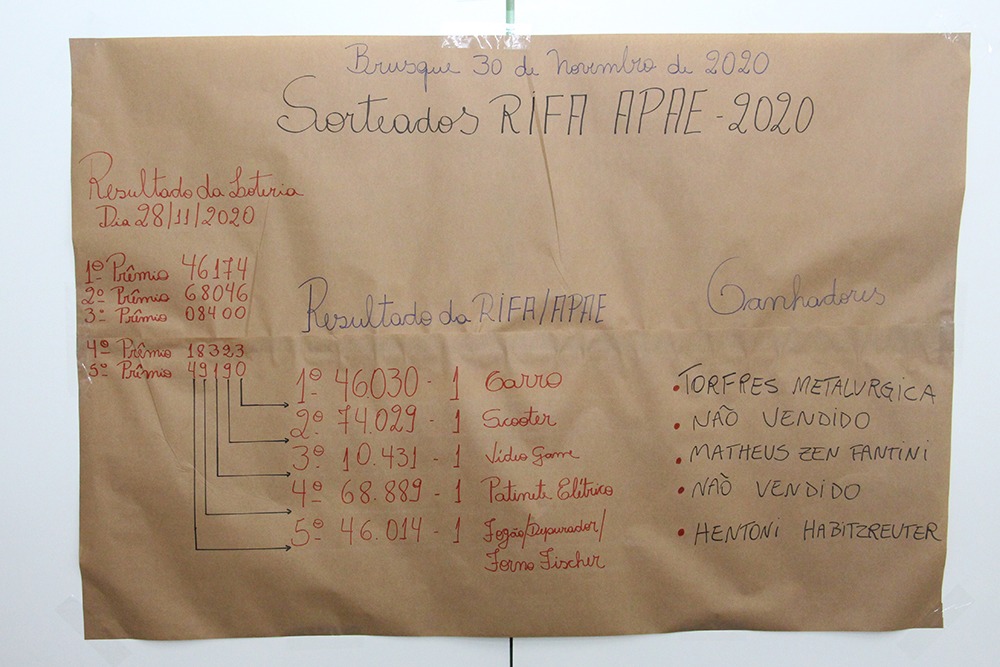 Brusque 30 de Novembro de 2020
Sorteados RIFA APAE - 2020
Resultado da Loteria
Dia 28/11/2020
1º Prêmio 46174
2º Prêmio 68046
3º Prêmio 08400
4º Prêmio 18323
5º Prêmio 49190
Resultado da RIFA/APAE
Ganhadores
1º 46.030 - 1 Carro • TORFRES METALURGICA
2º 74.029 - 1 Scooter • NÃO VENDIDO
3º 10.431 - 1 Vídeo Game • MATHEUS ZEN FANTINI
4º 68.889 - 1 Patinete Elétrico • NÃO VENDIDO
5º 46.014 - 1 Fogão/Depurador/ • HENTONI HABITZREUTER
Forno Fischer